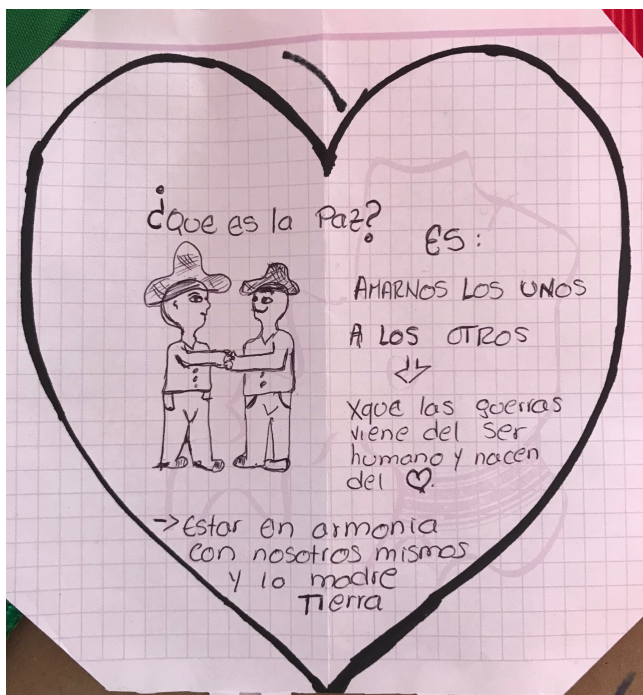 ¿Que es la Paz?
ES:
AMARNOS LOS UNOS
A LOS OTROS
xque las guerras
viene del ser
humano y nacen
del ♡.
→ Estar en armonia
con nosotros mismos
y la madre
Tierra